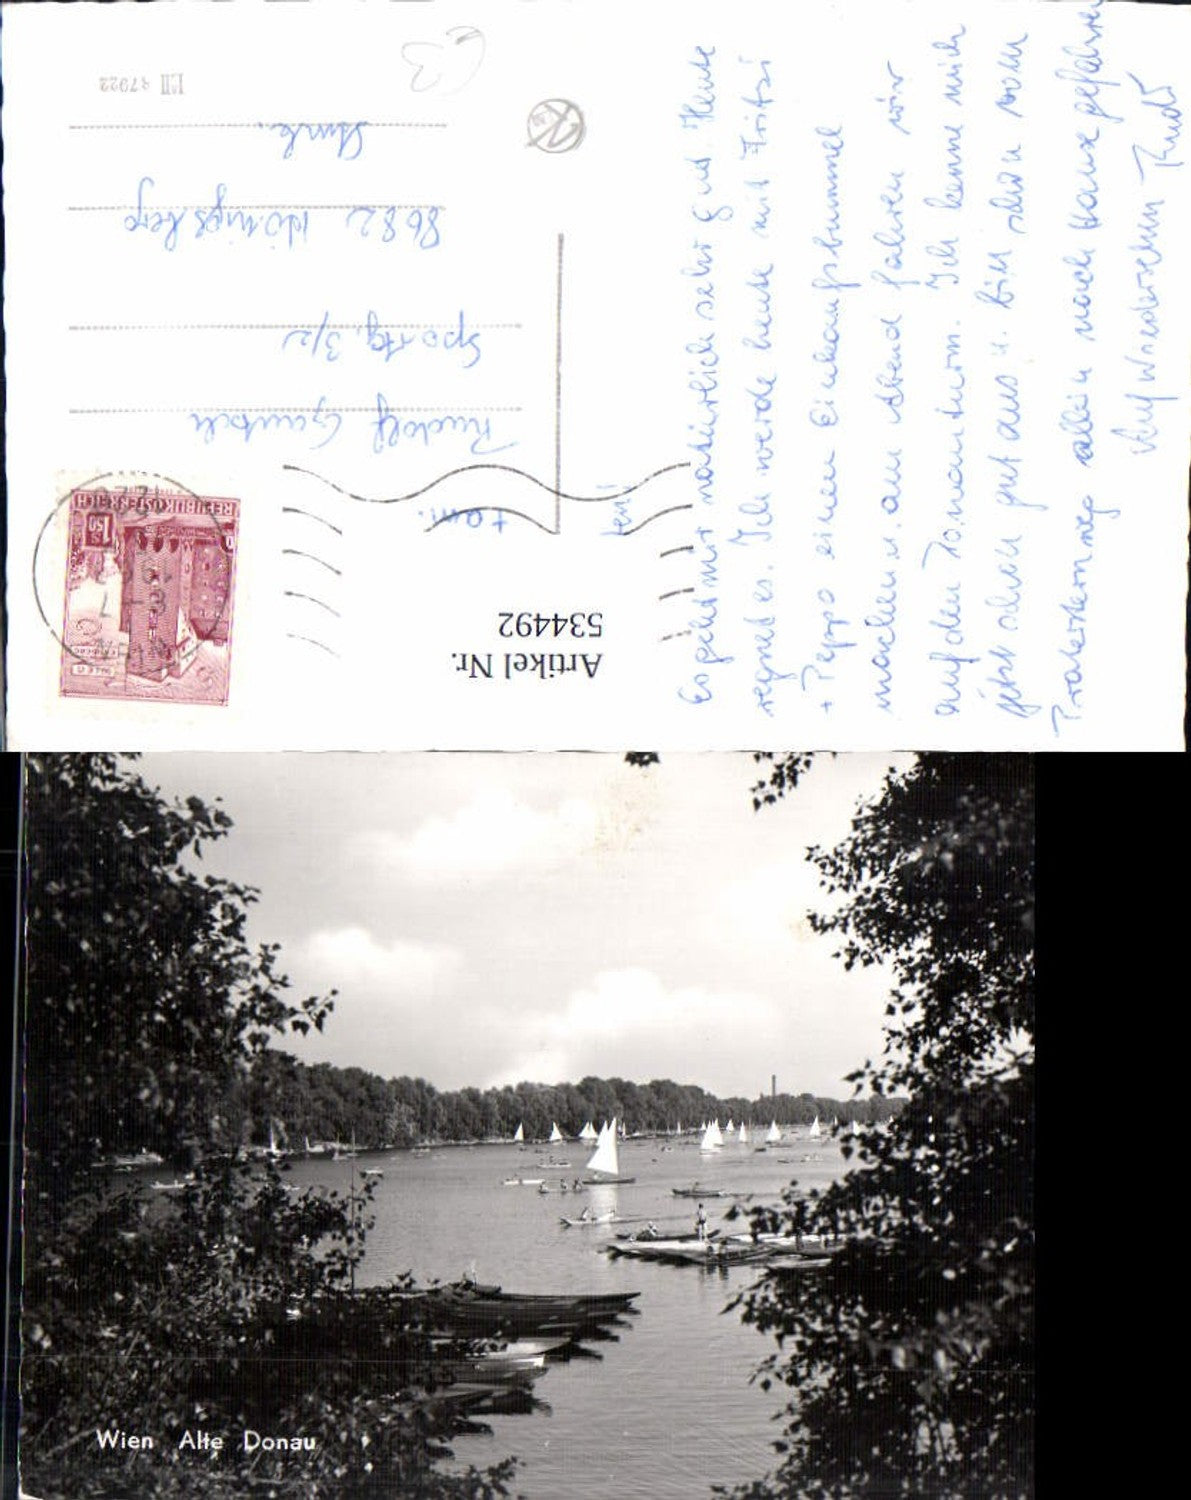 Es geht mir natürlich sehr gut. Heute
regnet es. Ich werde heute mit Fritzi
+ Peppo einen Einkaufsbummel
machen u. am Abend fahren wir
auf den Donauturm. Ich kenne mich
jetzt schon gut aus u. bin schon vom
Praterstern weg allein nach Hause gefahren
Auf Wiedersehen Rudi
Rudolf
Spo stg. 3/2
8682 Hönigsberg
Stmk.
REPUBLIK ÖSTERREICH
S 1.50
WIEN
Artikel Nr.
534492
Wien Alte Donau